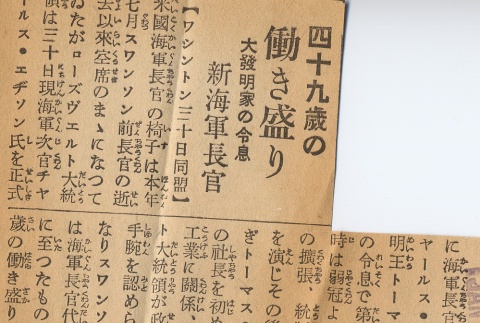 四十九歳の
働き盛り
大發明家の令息
新海軍長官
【ワシントン三十日同盟】
米國海軍長官の椅子は本年
七月スワンソン前長官の逝
去以來空席のまゝになつて
ゐたがローズヴエルト大統
領は三十日現海軍次官チヤ
ールス・エヂソン氏を正式
に海軍長官
ヤールス・
明王トーマス
の令息で第
時は弱冠よ
の擴張、統
を演じその後
ぎトーマス
の社長を初め
工業に關係、
ト大統領が政
手腕を認めら
なりスワンソ
は海軍長官代
に至つたもの
歳の働き盛り